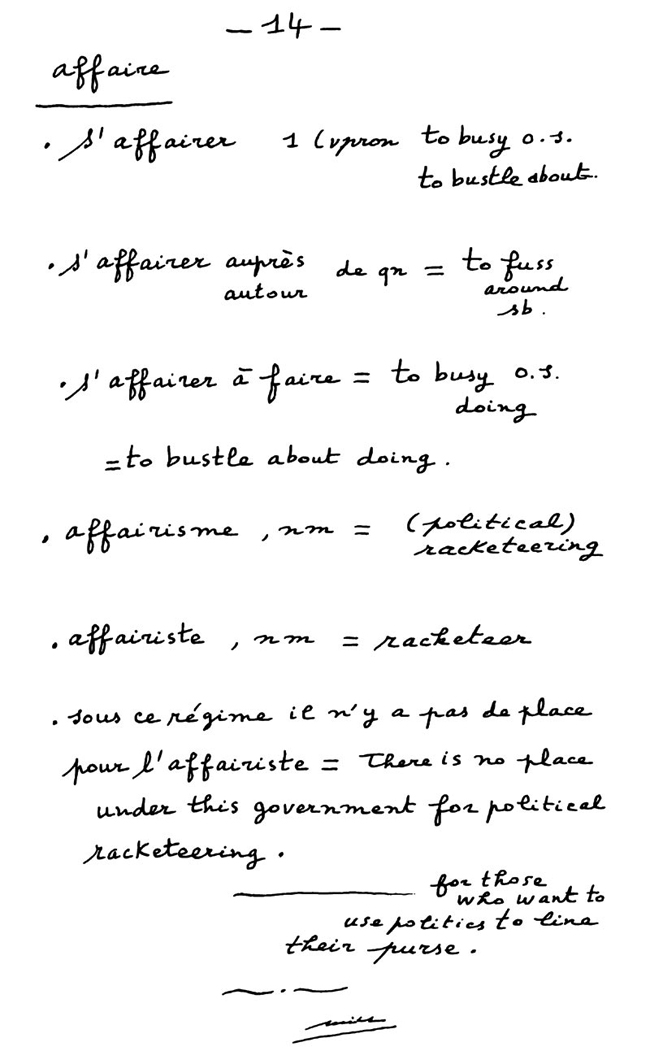 - 14 -
affaire
. s'affairer 1 (vpron to busy o.s.
to bustle about.
. s'affairer auprès de qn = to fuss
autour around
sb.
. s'affairer à faire = to busy o.s.
doing
= to bustle about doing.
. affairisme, nm = (political)
racketeering
. affairiste, nm = racketeer
. sous ce régime il n'y a pas de place
pour l'affairiste = There is no place
under this government for political
racketeering.
for those
who want to
use politics to line
their purse.